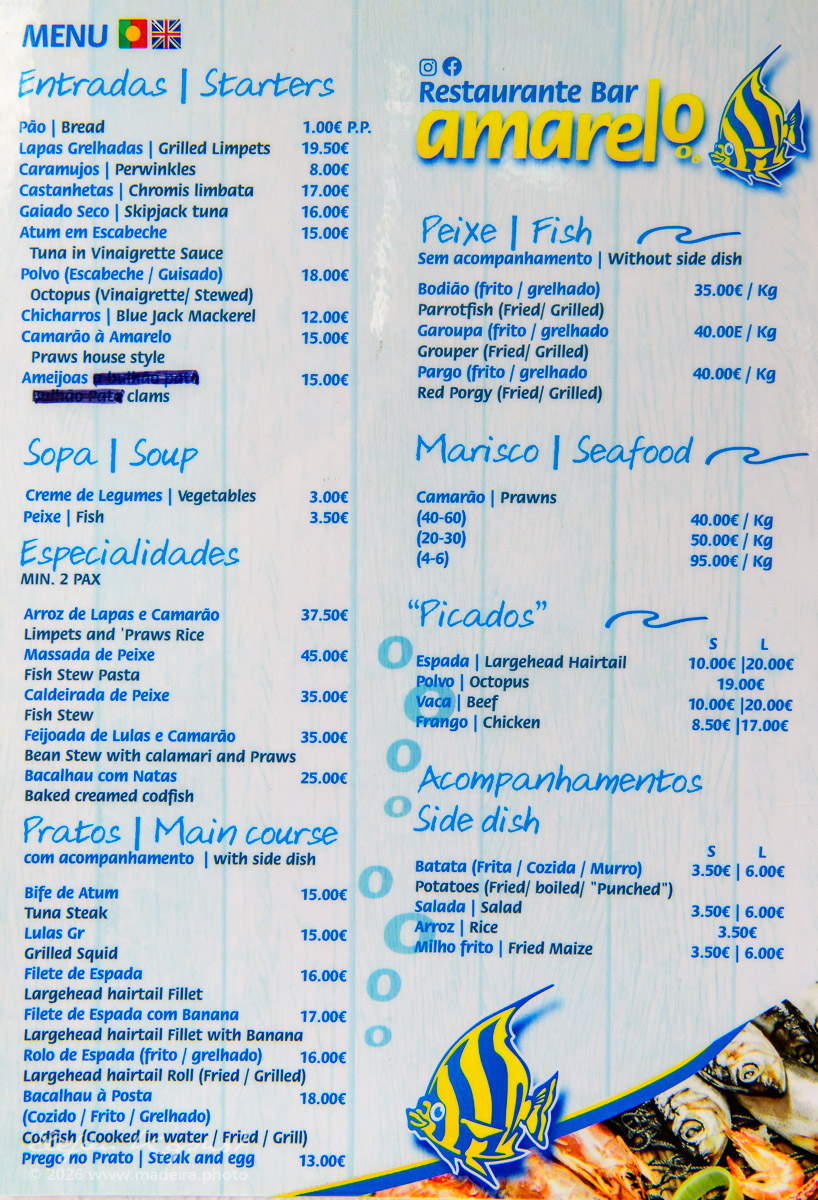 MENU
Entradas | Starters
Pão | Bread 1.00€ P.P.
Lapas Grelhadas | Grilled Limpets 19.50€
Caramujos | Perwinkles 8.00€
Castanhetas | Chromis limbata 17.00€
Gaiado Seco | Skipjack tuna 16.00€
Atum em Escabeche 15.00€
Tuna in Vinaigrette Sauce
Polvo (Escabeche / Guisado) 18.00€
Octopus (Vinaigrette/ Stewed)
Chicharros | Blue Jack Mackerel 12.00€
Camarão à Amarelo 15.00€
Praws house style
Ameijoas a bulhão pato 15.00€
Bulhão Pato clams
Sopa | Soup
Creme de Legumes | Vegetables 3.00€
Peixe | Fish 3.50€
Especialidades
MIN. 2 PAX
Arroz de Lapas e Camarão 37.50€
Limpets and 'Praws Rice
Massada de Peixe 45.00€
Fish Stew Pasta
Caldeirada de Peixe 35.00€
Fish Stew
Feijoada de Lulas e Camarão 35.00€
Bean Stew with calamari and Praws
Bacalhau com Natas 25.00€
Baked creamed codfish
Pratos | Main course
com acompanhamento | with side dish
Bife de Atum 15.00€
Tuna Steak
Lulas Gr 15.00€
Grilled Squid
Filete de Espada 16.00€
Largehead hairtail Fillet
Filete de Espada com Banana 17.00€
Largehead hairtail Fillet with Banana
Rolo de Espada (frito / grelhado) 16.00€
Largehead hairtail Roll (Fried / Grilled)
Bacalhau à Posta 18.00€
(Cozido / Frito / Grelhado)
Codfish (Cooked in water / Fried / Grill)
Prego no Prato | Steak and egg 13.00€
© 2026 www.madeira.photo
Restaurante Bar
amarelo
Peixe | Fish
Sem acompanhamento | Without side dish
Bodião (frito / grelhado) 35.00€ / Kg
Parrotfish (Fried/ Grilled)
Garoupa (frito / grelhado 40.00E / Kg
Grouper (Fried/ Grilled)
Pargo (frito / grelhado 40.00€ / Kg
Red Porgy (Fried/ Grilled)
Marisco | Seafood
Camarão | Prawns
(40-60) 40.00€ / Kg
(20-30) 50.00€ / Kg
(4-6) 95.00€ / Kg
"Picados"
S L
Espada | Largehead Hairtail 10.00€ |20.00€
Polvo | Octopus 19.00€
Vaca | Beef 10.00€ |20.00€
Frango | Chicken 8.50€ |17.00€
Acompanhamentos
Side dish
S L
Batata (Frita / Cozida / Murro) 3.50€ | 6.00€
Potatoes (Fried/ boiled/ "Punched")
Salada | Salad 3.50€ | 6.00€
Arroz | Rice 3.50€
Milho frito | Fried Maize 3.50€ | 6.00€